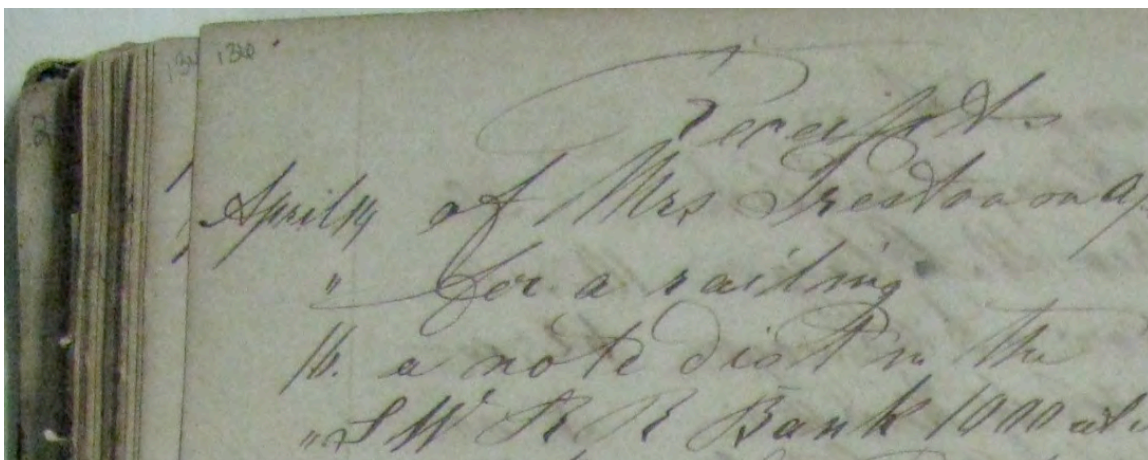 136
Receipts
April 14 of Mrs Preston on ap
" for a railing
16. a note dist in the
" S W R R Bank 1000 at